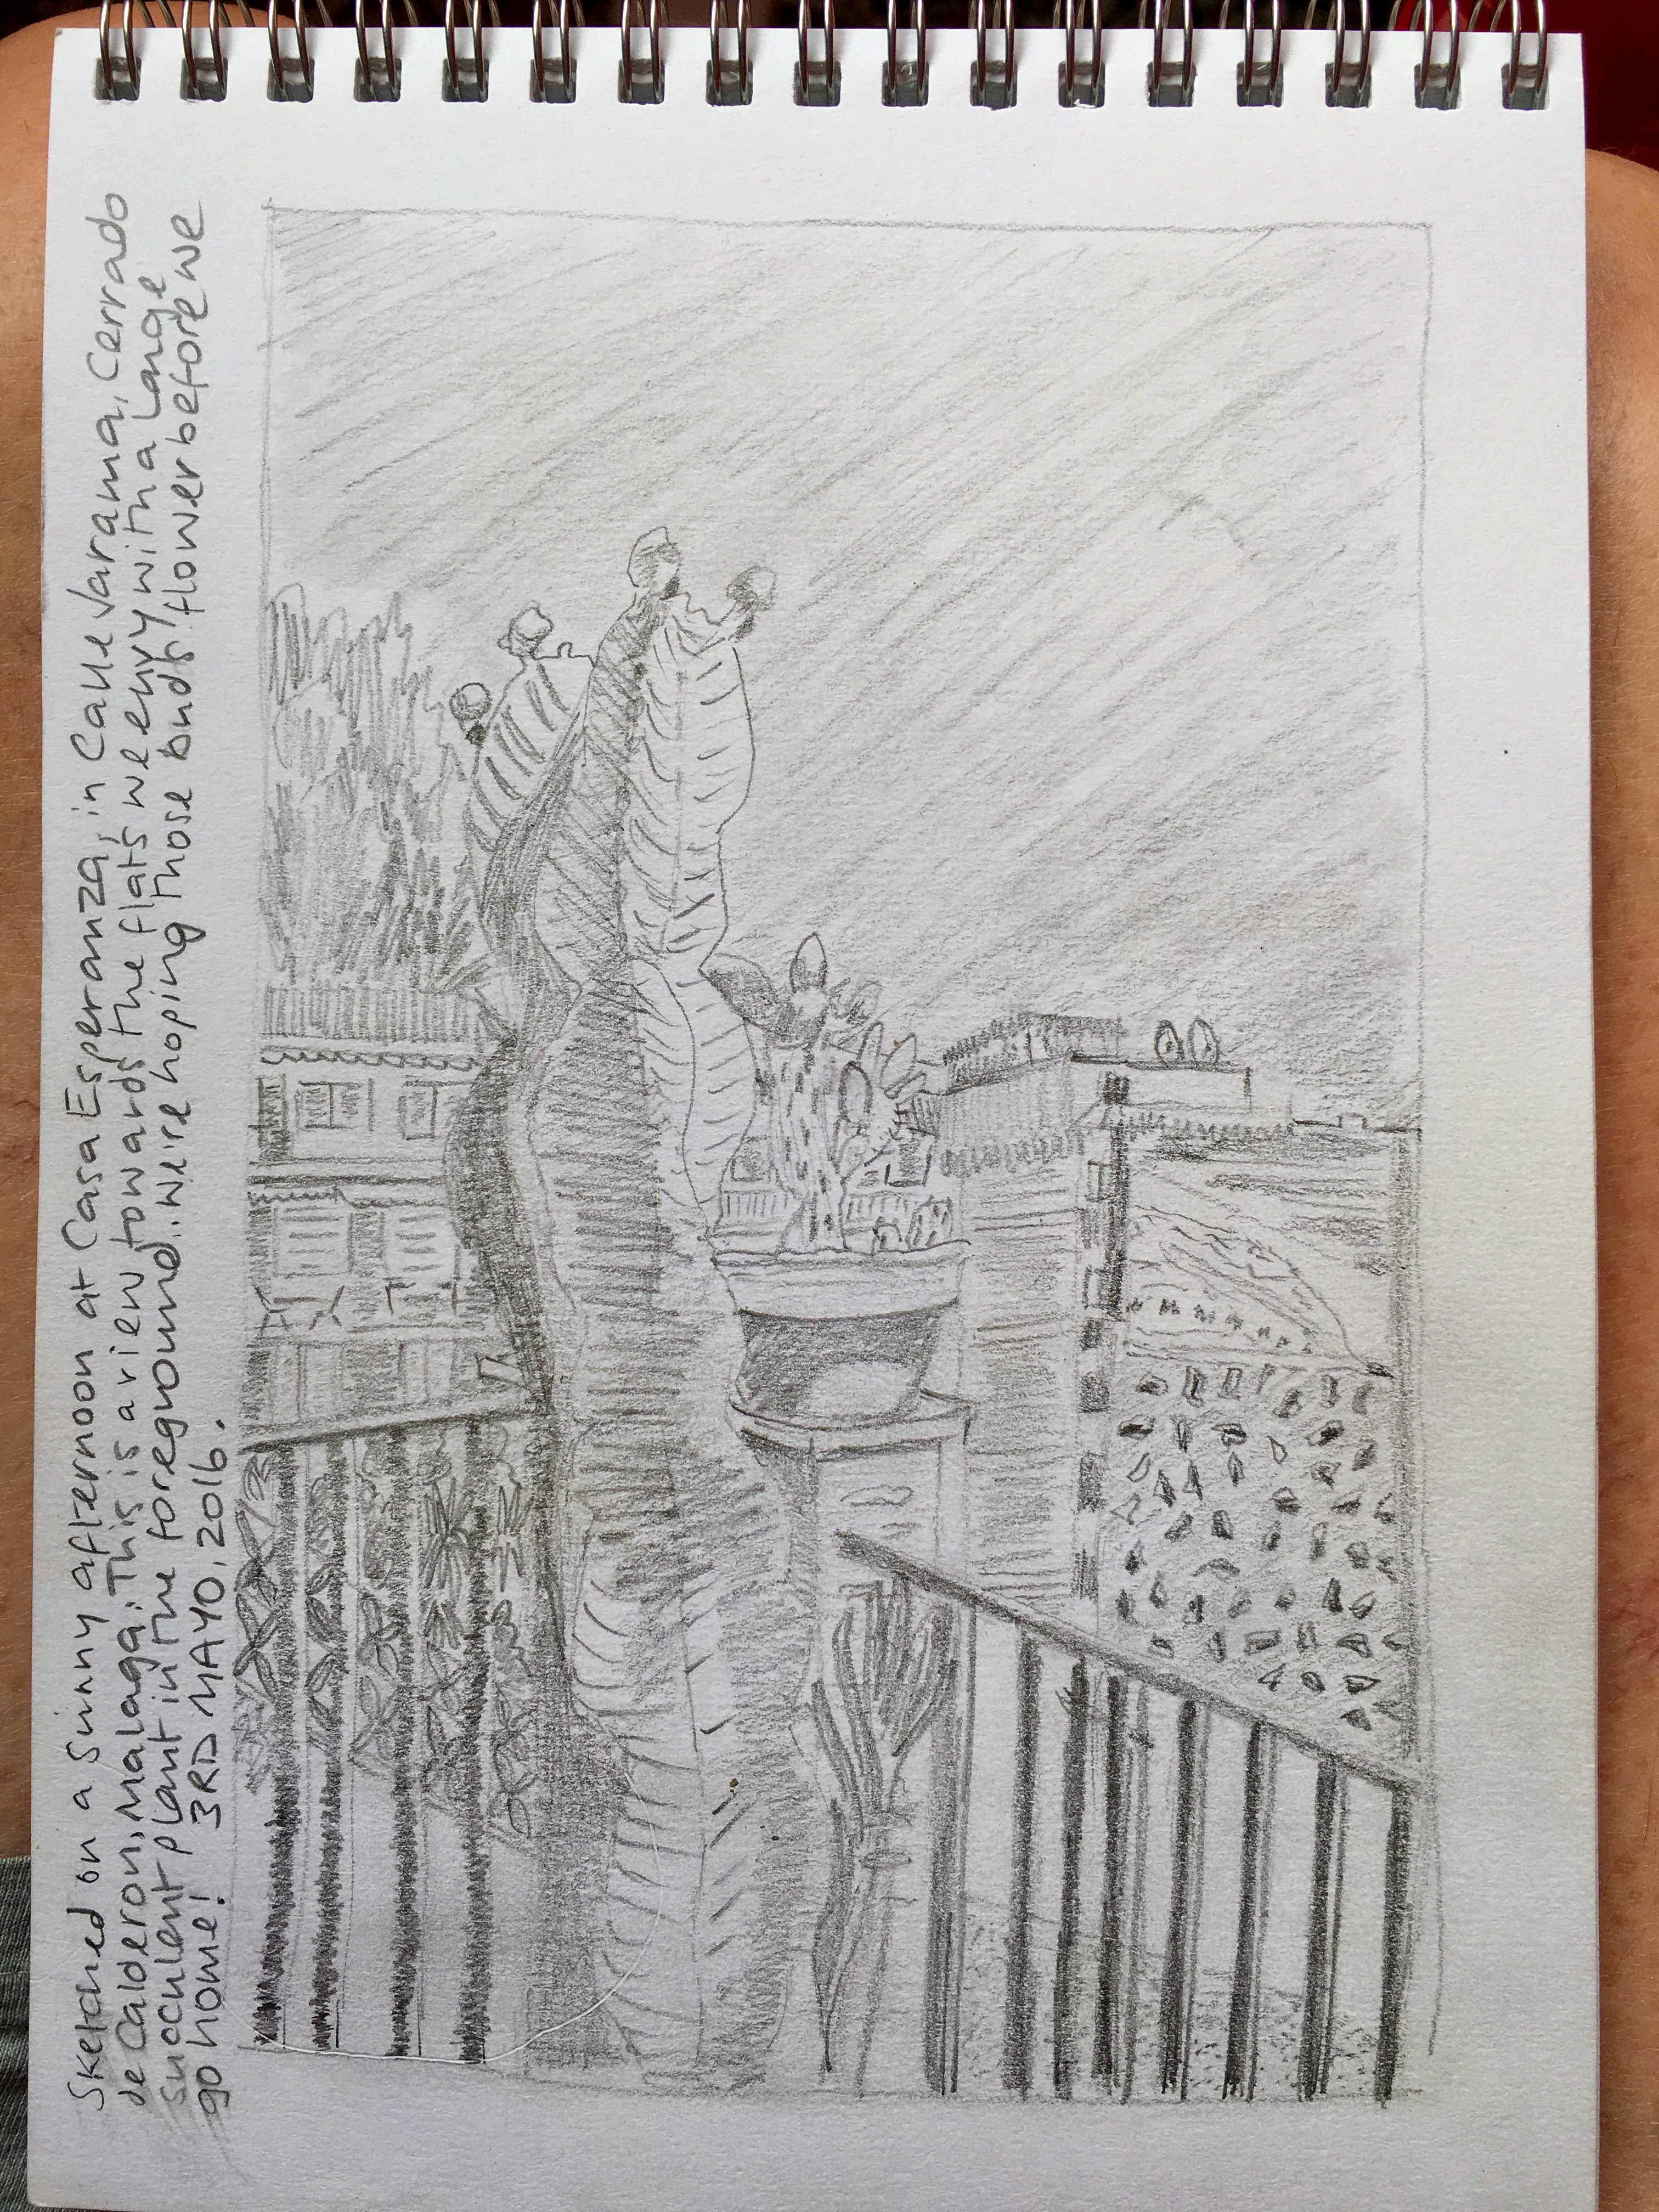 Sketched on a sunny afternoon at Casa Esperanza, in Calle Varama, Cerrado
de Calderon, Malaga. This is a view towards the flats weeny with a large
succulent plant in the foreground.. we're hoping those buds flower before we
go home! 3RD MAYO, 2016.